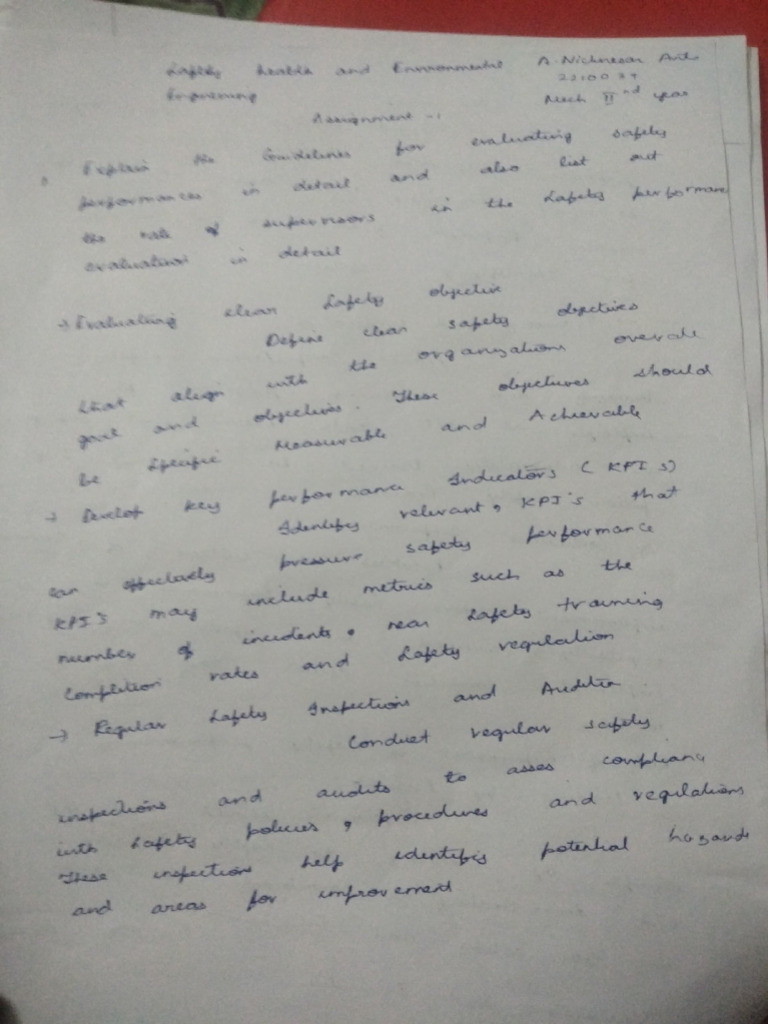 Safety health and Environmental A. Nichoresan
Engineering 2210034
Mech IInd year
Assignment - 1
Explain the Guidelines for evaluating safety
performances in detail and also list out
the role of supervisors in the safety performance
evaluation in detail
→ Evaluating clear Safety objective
Define clear safety objectives
that align with the organizations overall
goal and objectives. These objectives should
be specific Measurable and Achievable
→ Develop key performance Indicators (KPI's)
Identify relevant, KPI's that
can effectively pressure safety performance
KPI's may include metrics such as the
number of incidents, near safety training
Completion rates and safety regulation
→ Regular Safety Inspections and Audits
Conduct regular safety
inspections and audits to asses compliance
with safety policies, procedures and regulations
These inspections help identify potential hazards
and areas for improvement